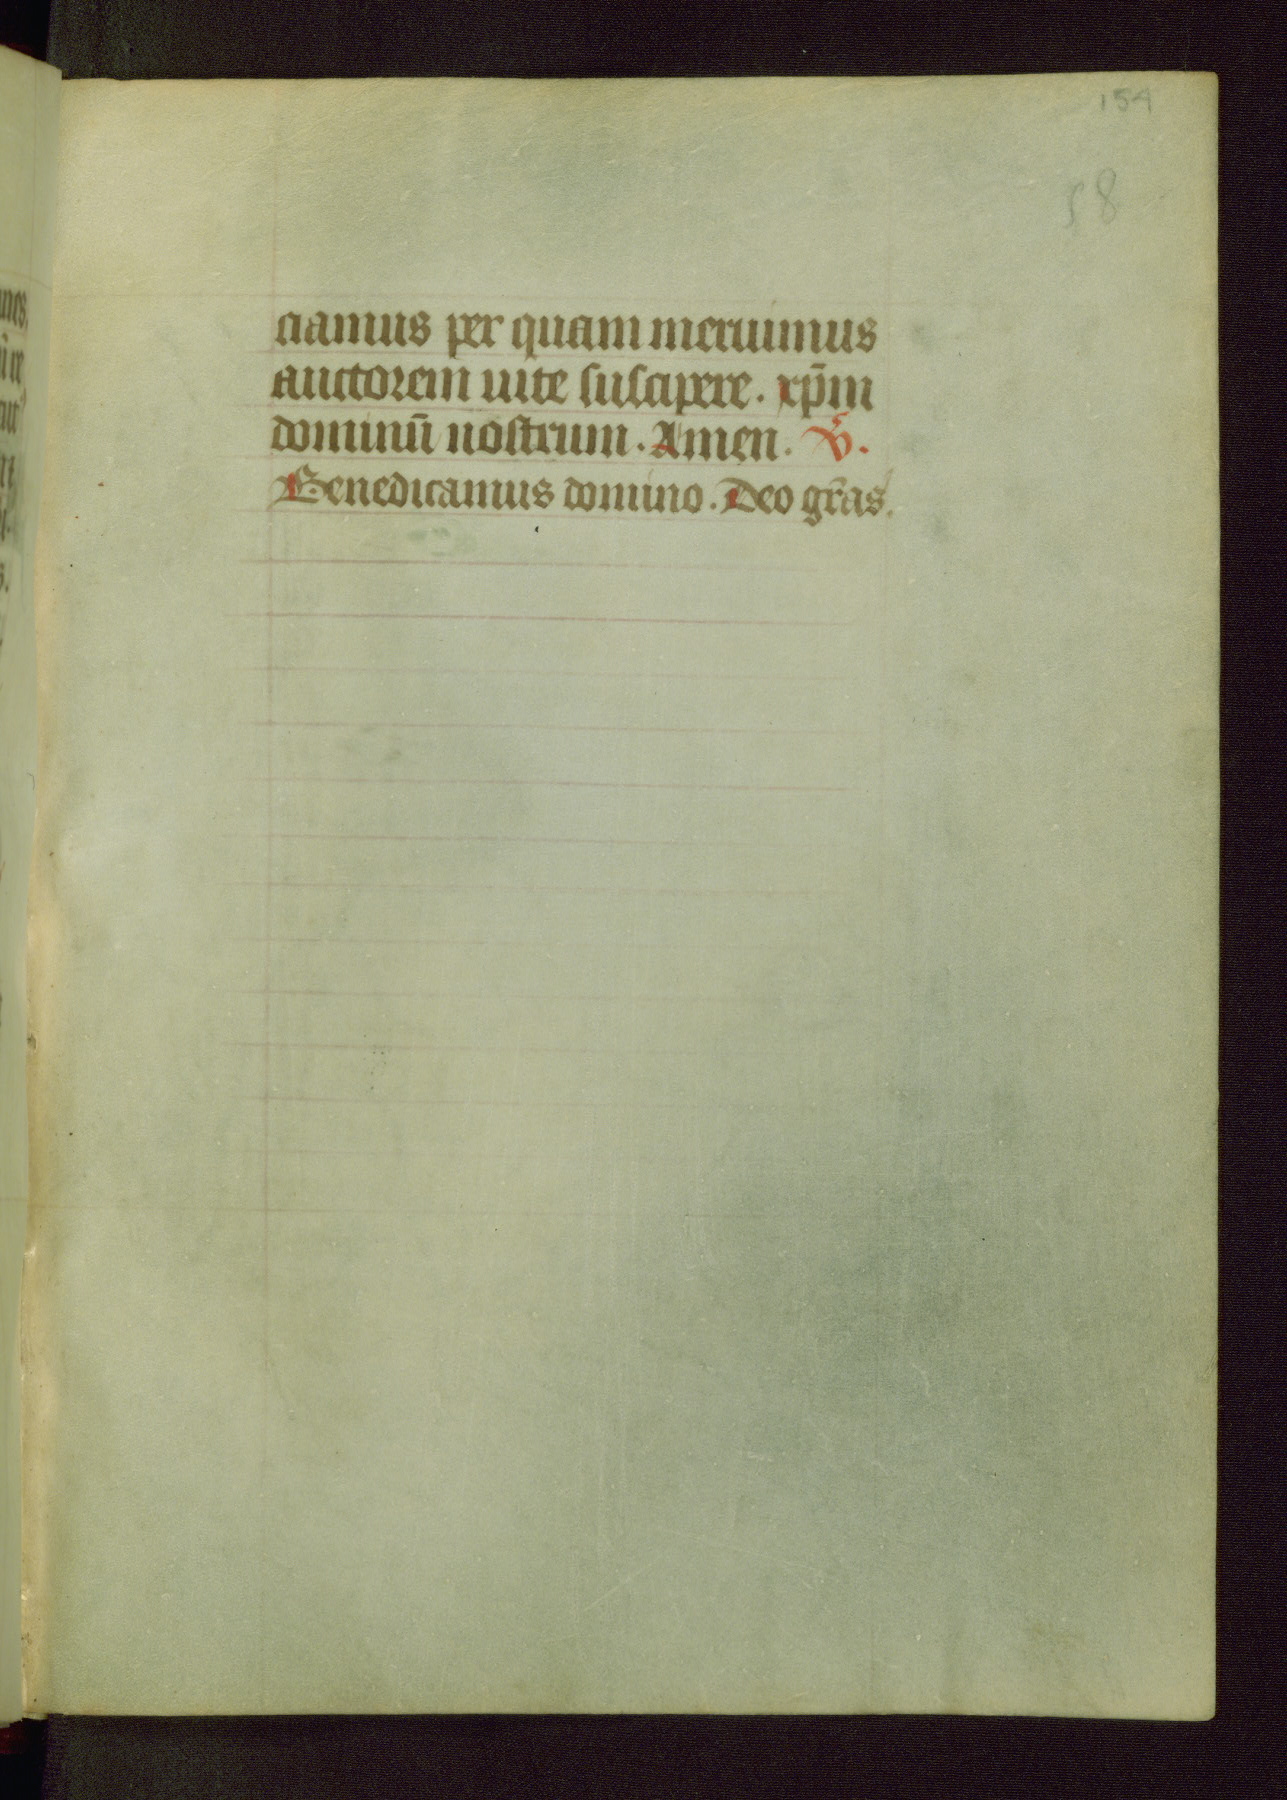 154
58
ciamus per quam meruimus
auctorem uite suscipere. xp̄m
dominū nostrum. Amen. V̕.
Benedicamus domino. Deo gr̄as.